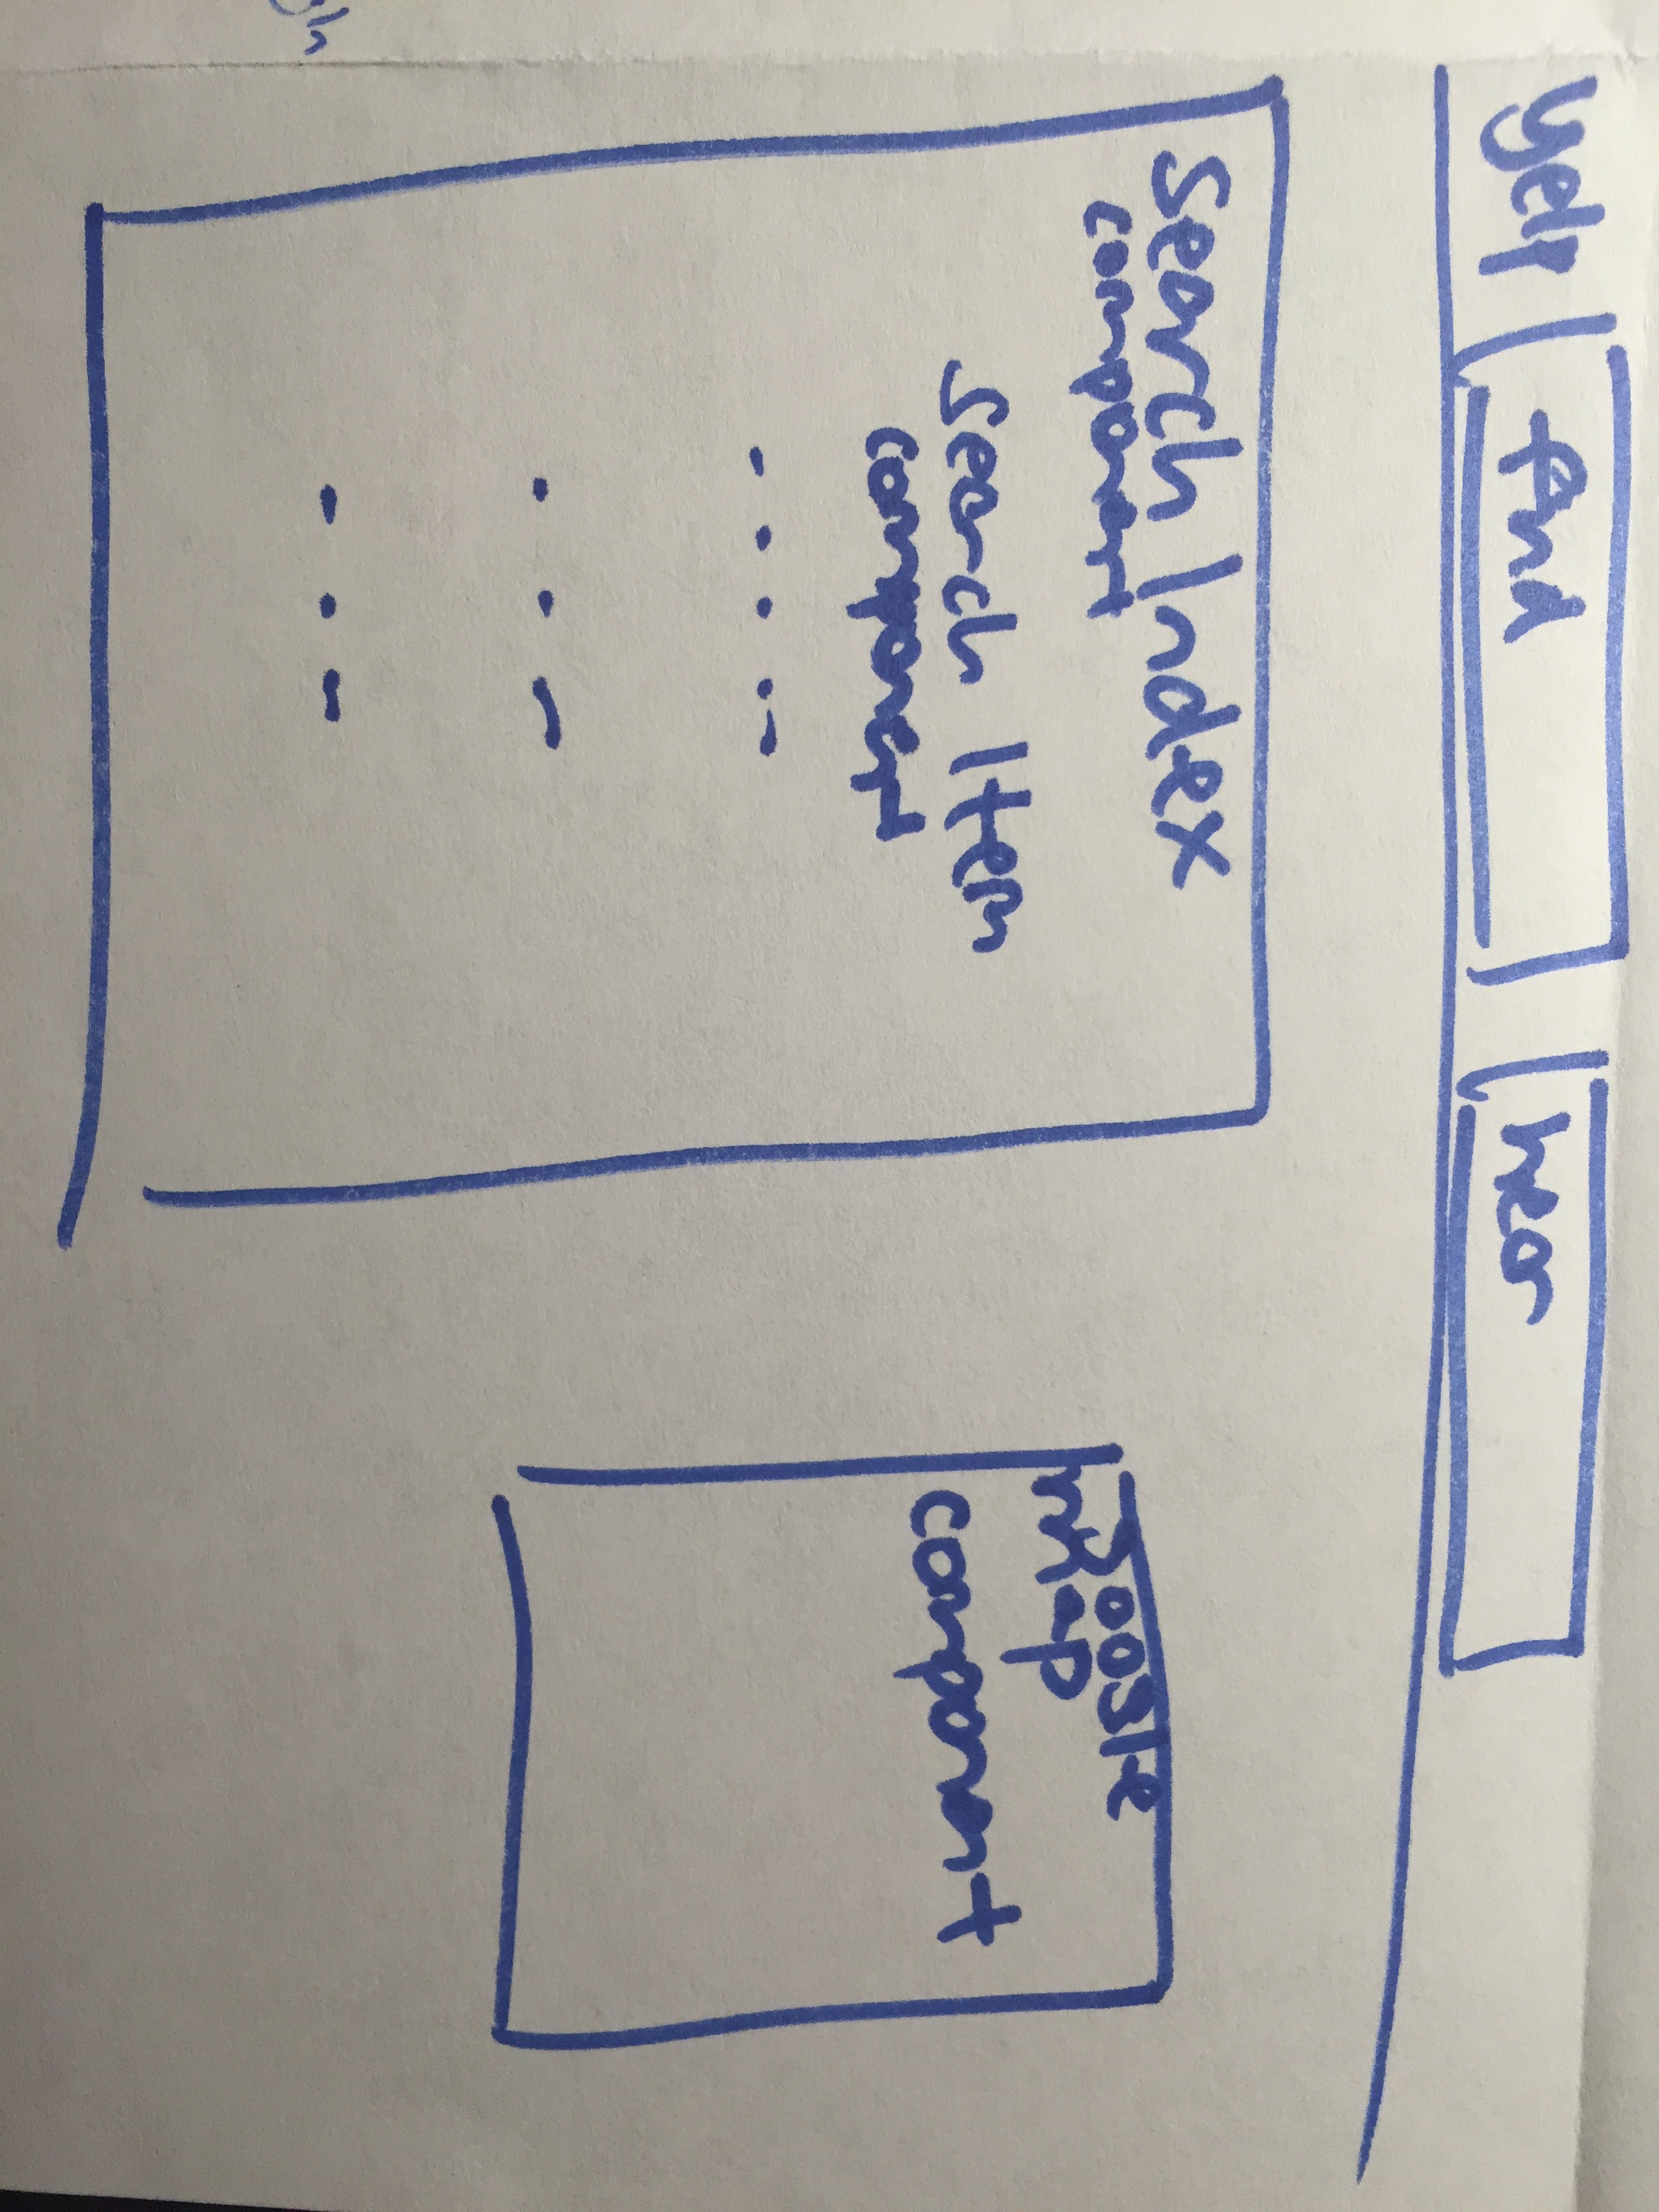 Yelp find near
Search Index
component
Search Item
component
Google
Map
component